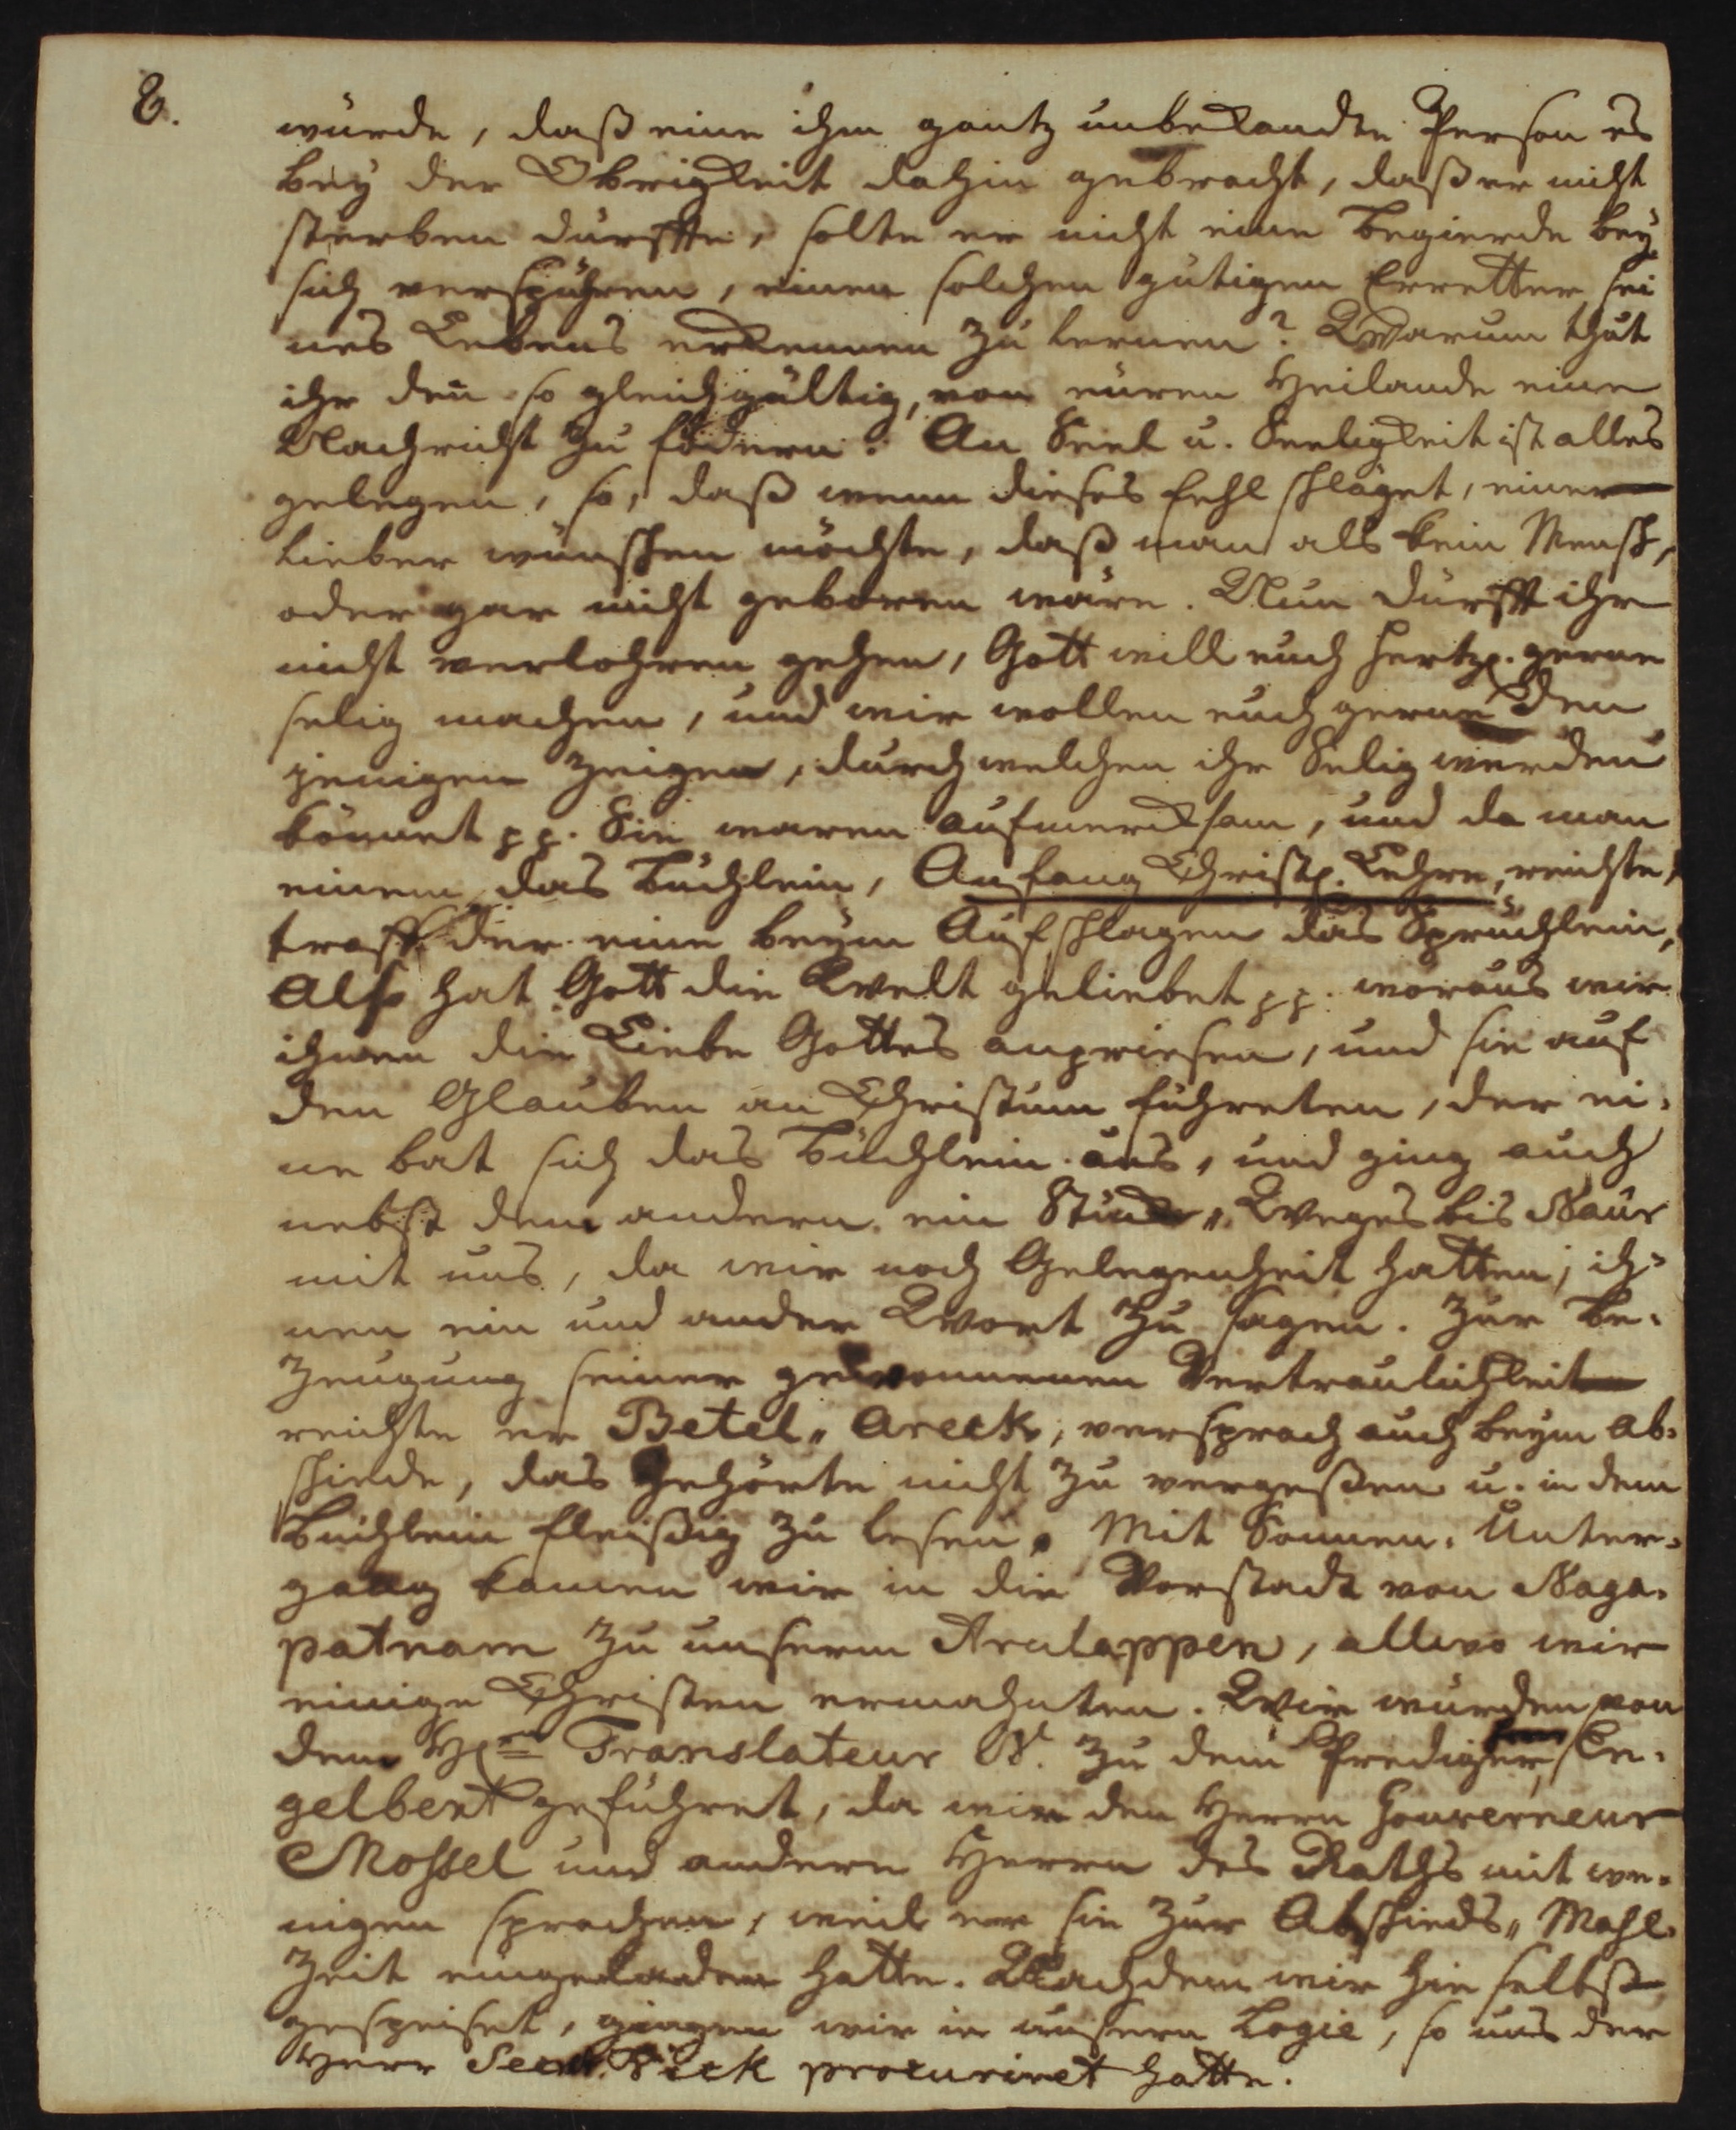 8.
würde, daß eine ihm gantz unbekandte Person es
bey der Obrigkeit dahin gebracht, daß er nicht
sterben dürffte, solte er nicht eine Begierde bey
sich verspühren, einen solchen gütigen Erretter sei
nes Lebens erkennen zu lernen? Warum thut
ihr deñ so gleichgültig, von euren Heilande eine
Nachricht zu fodern? An Seel u. Seeligkeit ist alles
gelegen, so, daß wenn dieses fehl schläget, einer
lieber wünschen möchte, daß man als kein Mensch,
oder gar nicht geboren wäre. Nun dürfft ihr
nicht verlohren gehen, Gott will euch hertzl. gerne
selig machen, und wir wollen euch gerne den
jenigen zeigen, durch welchen ihr Selig werden
könnet pp. Sie waren aufmercksam, und da man
einem das Büchlein, Anfang Christl. Lehre, reichte,
traff der eine beym Aufschlagen das Sprüchlein,
Also hat Gott die Welt geliebet pp. woraus wir
ihnen die Liebe Gottes anpriesen, und sie auf
den Glauben an Christum führeten, der ei-
ne bat sich das Büchlein aus, und ging auch
nebst dem andern ein Stück Weges bis Naur
mit uns, da wir noch Gelegenheit hatten, ih-
nen ein und ander Wort zu sagen. Zur Be-
zeugung seiner gewonnenen Vertraulichkeit
reichte er Betel, Areck, versprach auch beym Ab-
schiede, das Gehörte nicht zu vergeßen u. in dem
Büchlein fleißig zu lesen. Mit Sonnen-Unter-
gang kamen wir in die Vorstadt von Naga-
patnam zu unserm Arulappen, allwo wir
einige Christen ermahnten. Wir wurden von
dem Hln Translateur B. zu dem Prediger, En-
gelbert geführet, da wir den Herrn Gouverneur
Mossel und andern Herrn des Raths mit we-
nigen sprachen, weil er sie zur Abschieds-Mahl-
zeit eingeladen hatte. Nachdem wir hie selbst
gespeiset, gingen wir in unsern Logie, so uns der
Herr procuriret hatte.